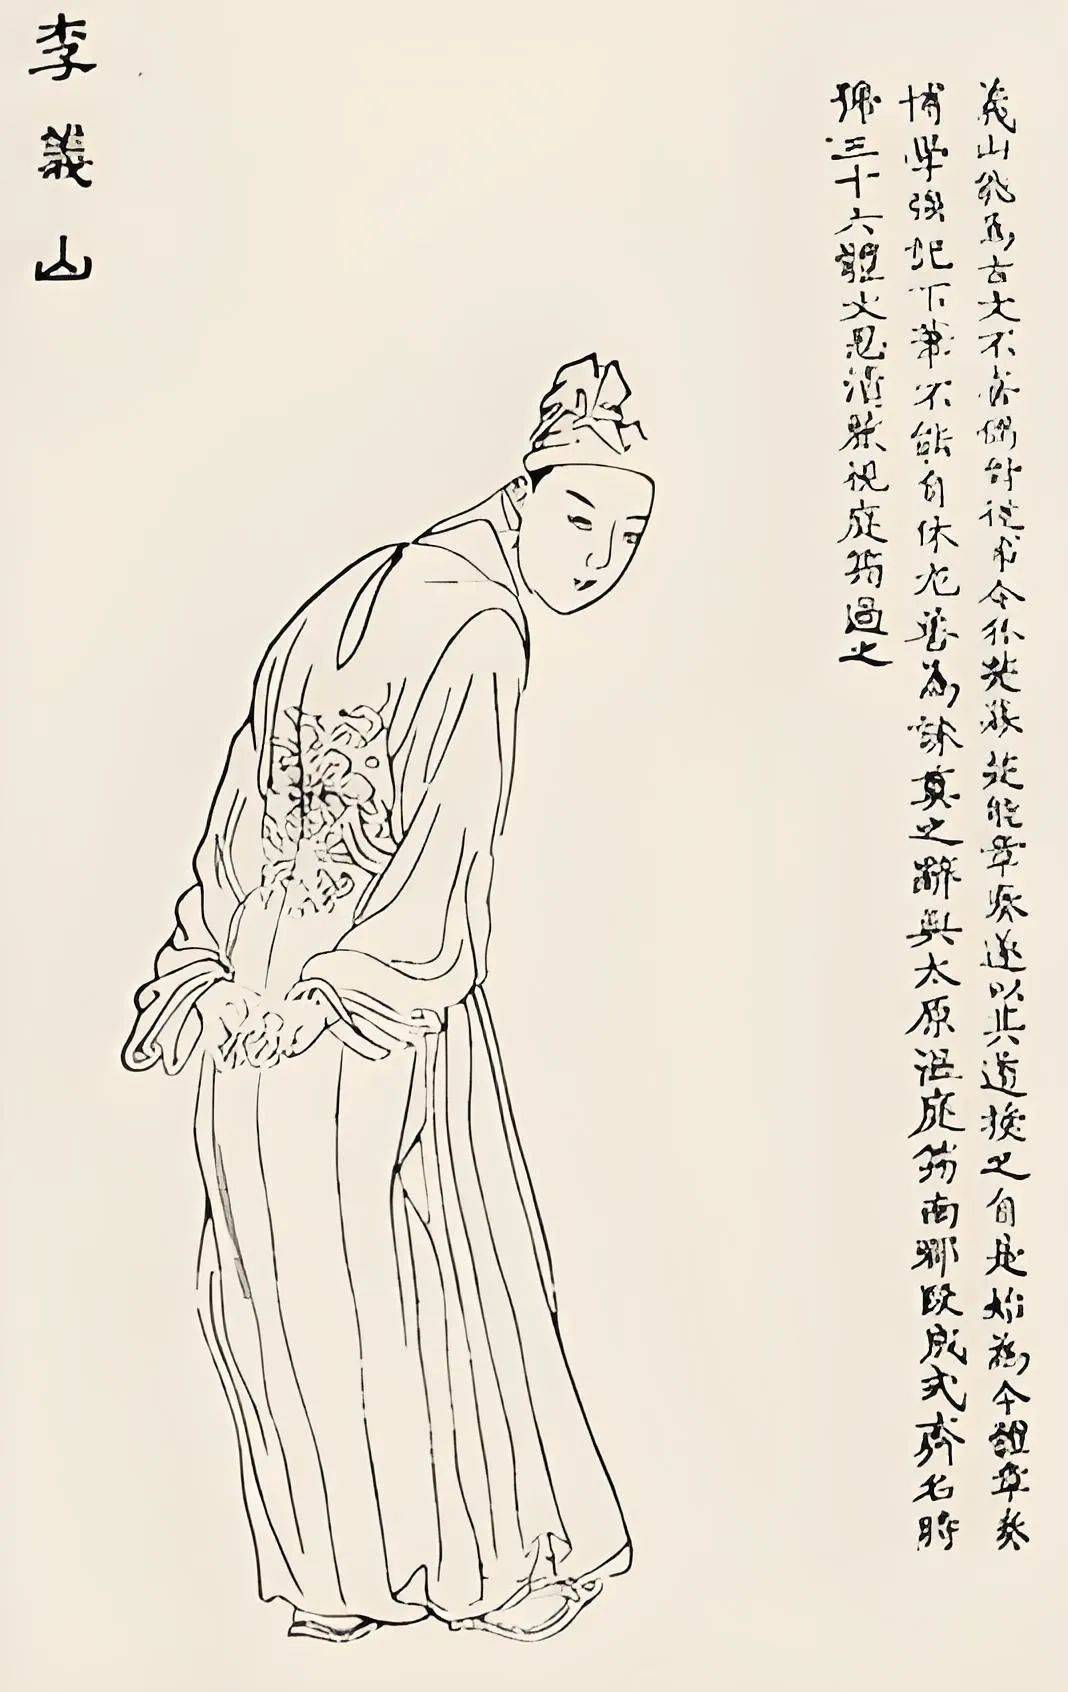 李義山
義山能為古文不喜偶對從事令狐楚幕楚能章奏遂以其道授之自是始為今體章奏
博學強記下筆不能自休尤善為誄奠之辭與太原温庭筠南郡段成式齊名時
號三十六體文思清麗視庭筠過之